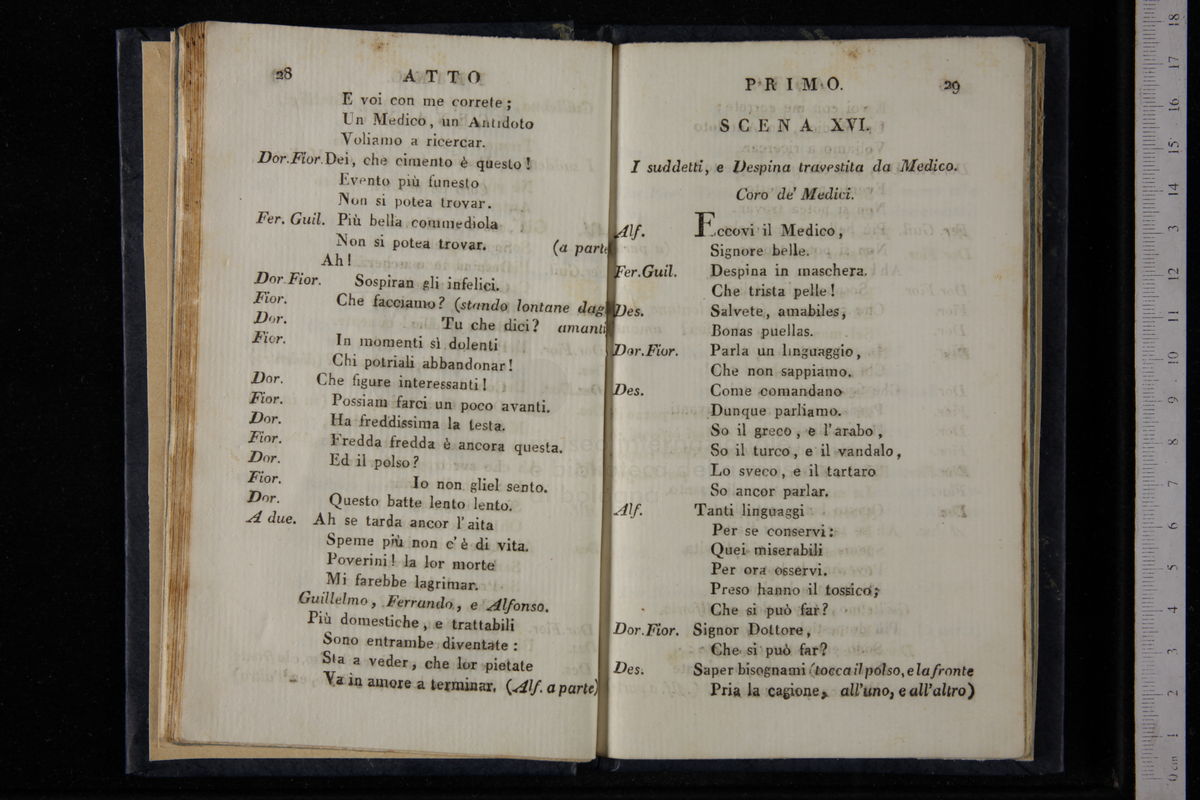 28 ATTO
E voi con me correte;
Un Medico, un Antidoto
Voliamo a ricercar.
Dor.Fior. Dei, che cimento è questo!
Evento più funesto
Non si potea trovar.
Fer. Guil. Più bella commediola
Non si potea trovar. (a parte
Ah!
Dor.Fior. Sospiran gli infelici.
Fior. Che facciamo? (stando lontane dag
Dor. Tu che dici? amanti
Fior. In momenti sì dolenti
Chi potriali abbandonar!
Dor. Che figure interessanti!
Fior. Possiam farci un poco avanti.
Dor. Ha freddissima la testa.
Fior. Fredda fredda è ancora questa.
Dor. Ed il polso?
Fior. Io non gliel sento.
Dor. Questo batte lento lento.
A due. Ah se tarda ancor l'aita
Speme più non c'è di vita.
Poverini! la lor morte
Mi farebbe lagrimar.
Guillelmo, Ferrando, e Alfonso.
Più domestiche, e trattabili
Sono entrambe diventate:
Sta a veder, che lor pietate
Va in amore a terminar. (Alf. a parte)
PRIMO. 29
SCENA XVI.
I suddetti, e Despina travestita da Medico.
Coro de' Medici.
Alf. Eccovi il Medico,
Signore belle.
Fer.Guil. Despina in maschera.
Che trista pelle!
Des. Salvete, amabiles,
Bonas puellas.
Dor.Fior. Parla un linguaggio,
Che non sappiamo.
Des. Come comandano
Dunque parliamo.
So il greco, e l'arabo,
So il turco, e il vandalo,
Lo sveco, e il tartaro
So ancor parlar.
Alf. Tanti linguaggi
Per se conservi:
Quei miserabili
Per ora osservi.
Preso hanno il tossico;
Che si può far?
Dor.Fior. Signor Dottore,
Che si può far?
Des. Saper bisognami (tocca il polso, e la fronte
Pria la cagione, all'uno, e all'altro)
0 cm 1 2 3 4 5 6 7 8 9 10 11 12 13 14 15 16 17 18